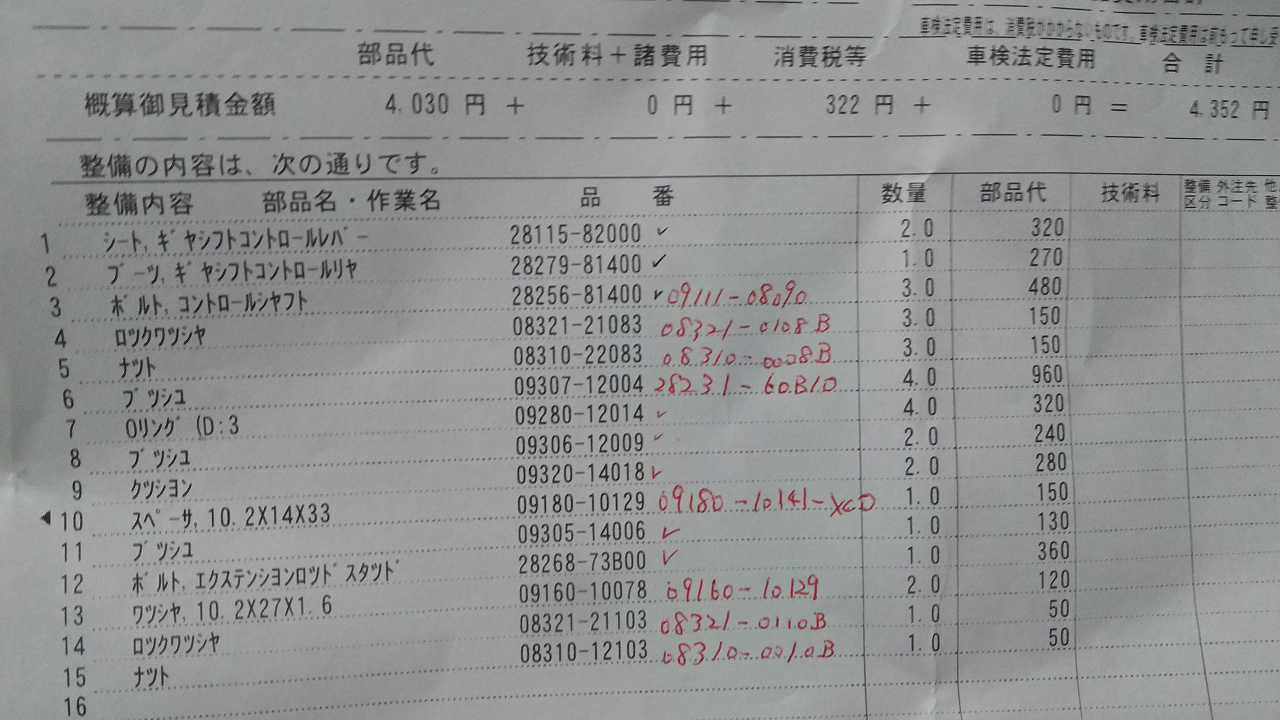 車検法定費用は、消費税がかからないものです。車検法定費用は前もって申し受
部品代 技術料＋諸費用 消費税等 車検法定費用 合 計
概算御見積金額 4.030 円 ＋ 0 円 ＋ 322 円 ＋ 0 円 ＝ 4.352 円
整備の内容は、次の通りです。
整備内容 部品名・作業名 品 番 数量 部品代 技術料 整備区分 外注先コード 他 整
1 シート,ギヤシフトコントロールレバー 28115-82000 ✓ 2.0 320
2 ブーツ,ギヤシフトコントロールリヤ 28279-81400 ✓ 1.0 270
3 ボルト,コントロールシヤフト 28256-81400 ✓ 09111-08090 3.0 480
4 ロツクワツシヤ 08321-21083 08321-0108B 3.0 150
5 ナツト 08310-22083 08310-0008B 3.0 150
6 ブツシユ 09307-12004 28231-60B10 4.0 960
7 Oリング (D:3 09280-12014 ✓ 4.0 320
8 ブツシユ 09306-12009 ✓ 2.0 240
9 クツシヨン 09320-14018 ✓ 2.0 280
◀ 10 スペーサ,10.2X14X33 09180-10129 09180-10141-XC0 1.0 150
11 ブツシユ 09305-14006 ✓ 1.0 130
12 ボルト,エクステンシヨンロツドスタツド 28268-73B00 ✓ 1.0 360
13 ワツシヤ,10.2X27X1.6 09160-10078 09160-10129 2.0 120
14 ロツクワツシヤ 08321-21103 08321-0110B 1.0 50
15 ナツト 08310-12103 08310-0010B 1.0 50
16